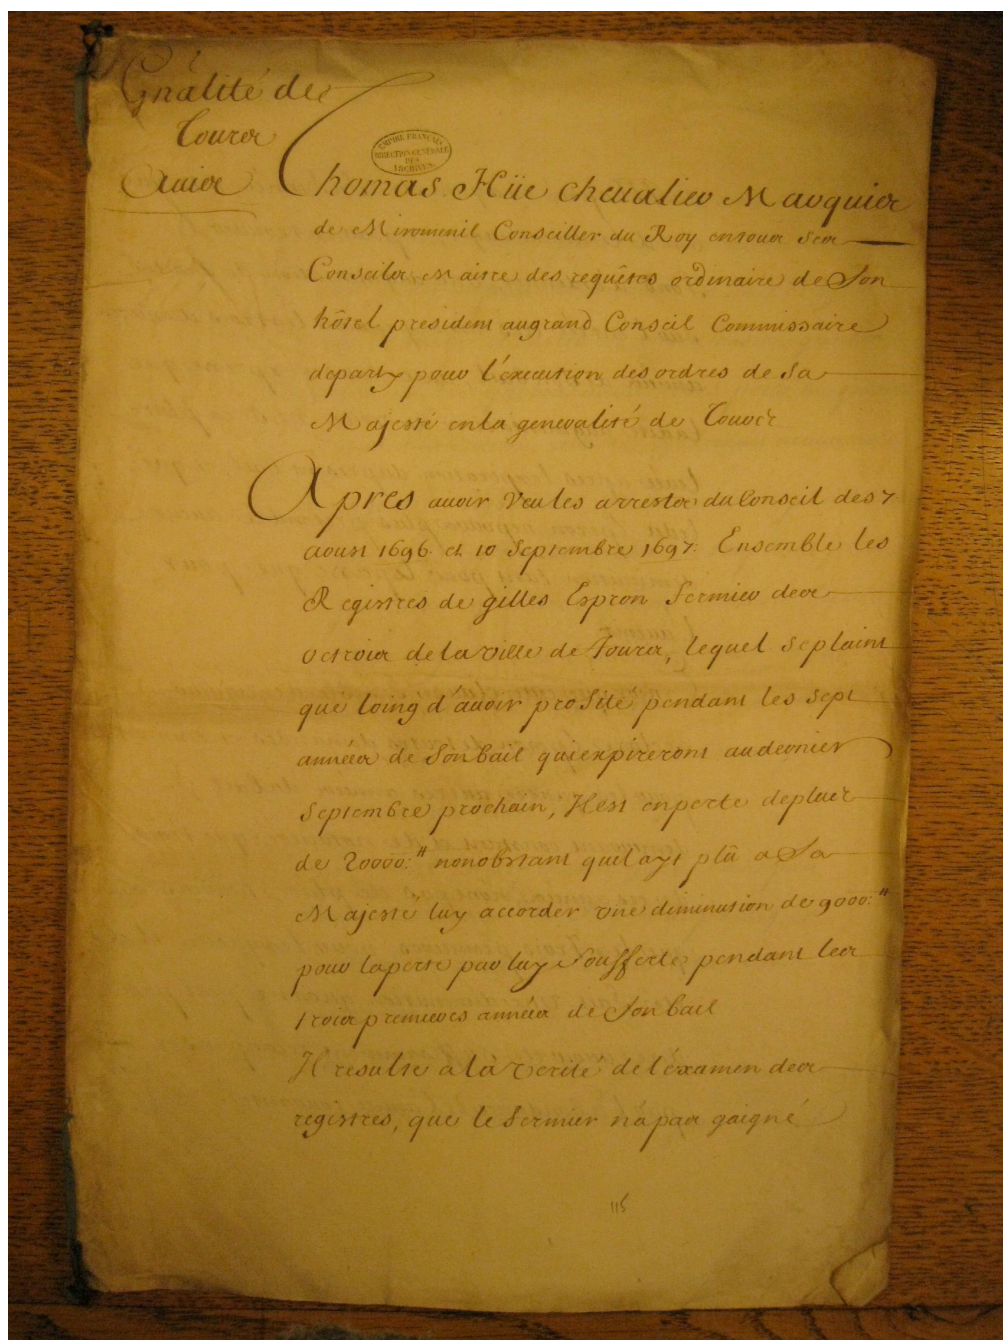 Gnãlité de
Tours
Auis
EMPIRE FRANÇAIS
DIRECTION GÉNÉRALE
DES
ARCHIVES
Thomas Hüe cheualier Marquis
de Miromenil Conseiller du Roy en tous ses
Conseils Maitre des requêtes ordinaire de Son
hôtel president au grand Conseil Commissaire
departy pour l'éxecution des ordres de Sa
Majesté en la generalité de Tours
Apres auoir Veu les arrestes du Conseil des 7
aoust 1696. et 10 Septembre 1697. Ensemble les
Registres de gilles Espron fermier des
octrois de la ville de Tours, lequel se plaint
que loing d'auoir profité pendant les sept
années de Son bail qui expireront au dernier
Septembre prochain, Il est en perte de plus
de 20000.ᵗᵗ nonobstant quil ayt plû a Sa
Majesté luy accorder vne diminution de 9000.ᵗᵗ
pour la perte par luy Soufferte pendant les
trois premieres années de Son bail
Il resulte a la verité de l'éxamen des
registres, que le fermier n'a pas gaigné
115